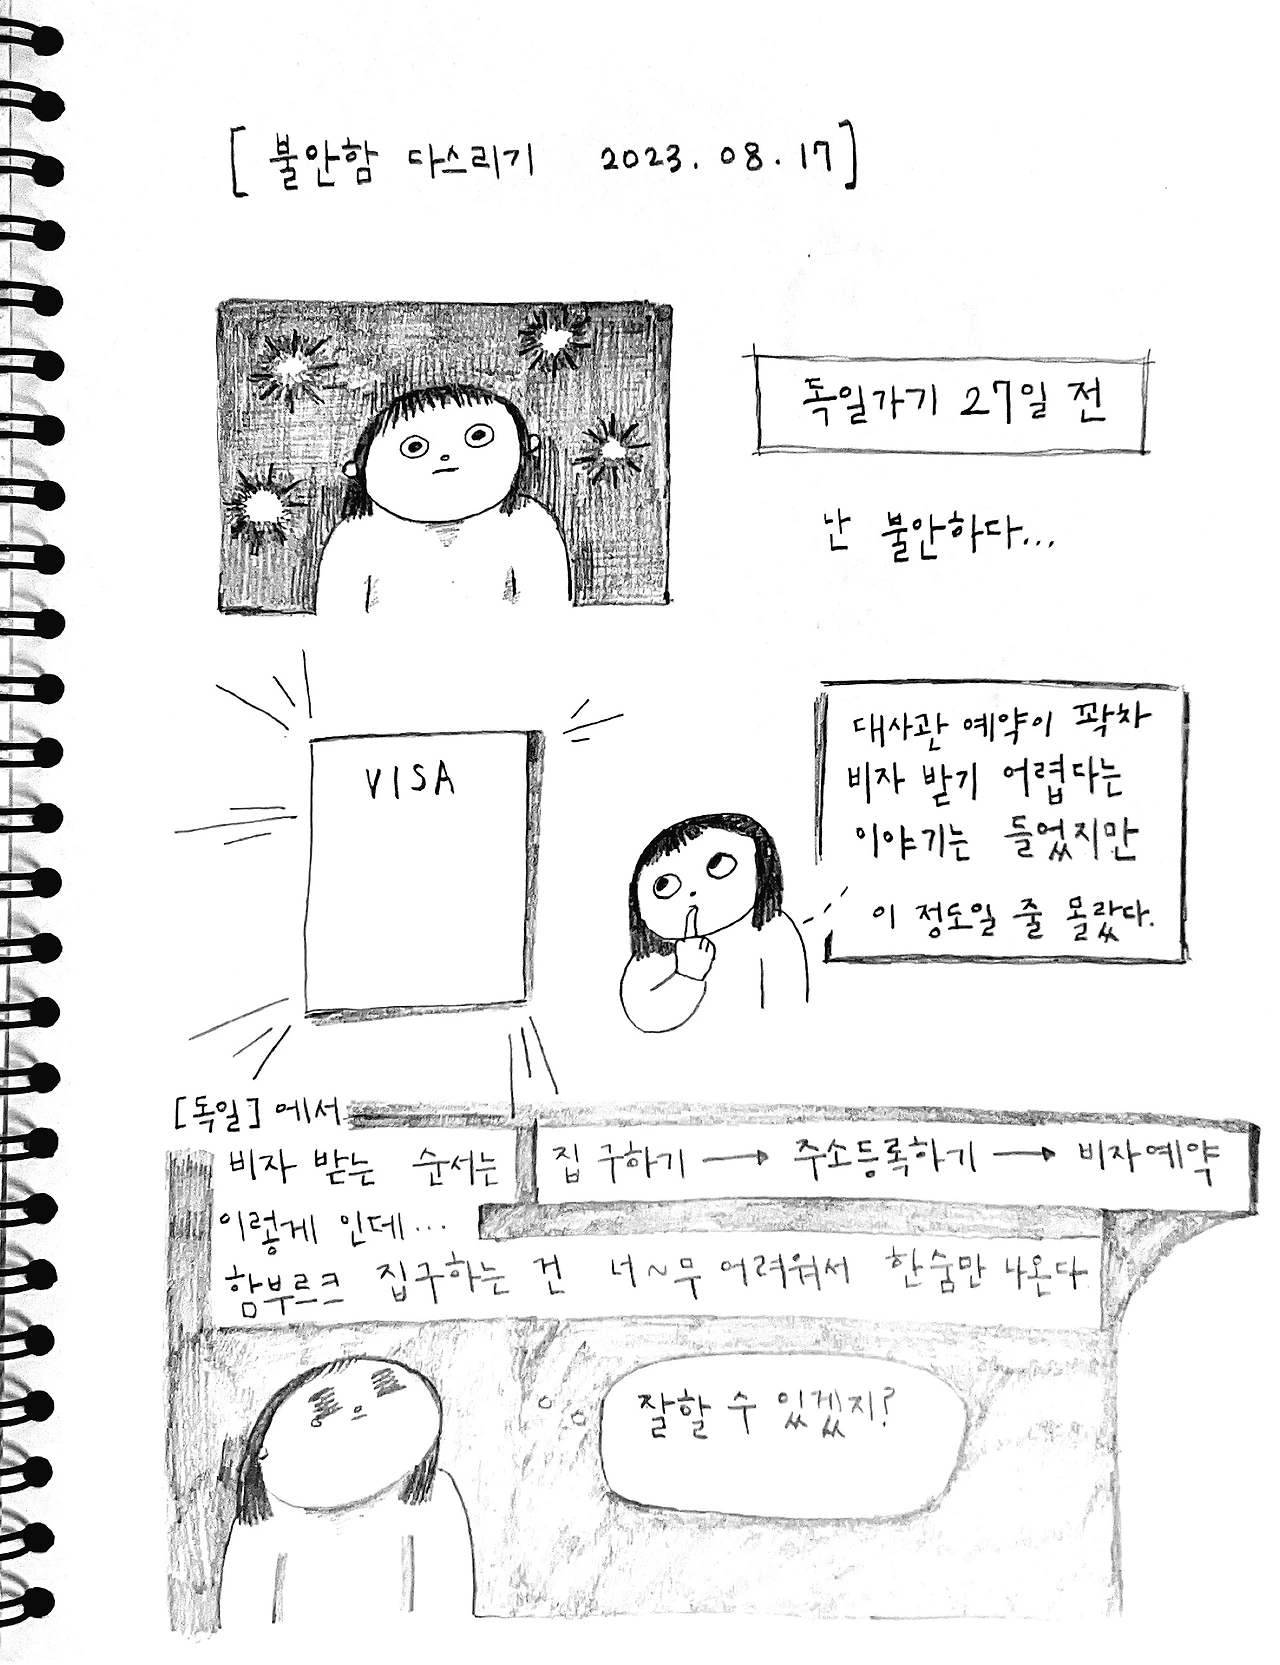 [ 불안함 다스리기 2023. 08. 17 ]
독일가기 27일 전
난 불안하다...
VISA
대사관 예약이 꽉차
비자 받기 어렵다는
이야기는 들었지만
이 정도일 줄 몰랐다.
[독일] 에서
비자 받는 순서는
집 구하기 → 주소등록하기 → 비자예약
이렇게 인데...
함부르크 집구하는 건 너~무 어려워서 한숨만 나온다
잘할 수 있겠지?